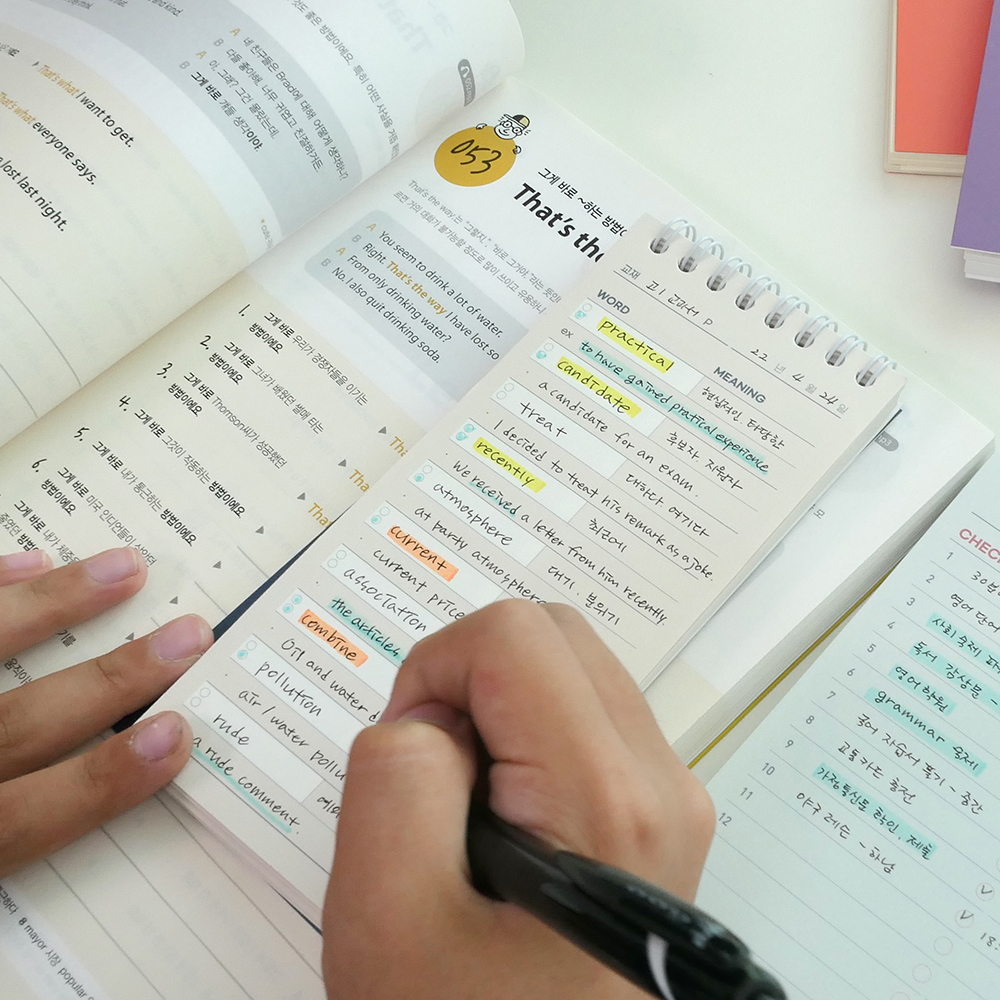 That's what I want to get.
That's what everyone says.
lost last night.
A 네 친구들은 Brad에 대해 어떻게 생각하니?
B 다들 좋아해. 너무 귀엽고 친절하거든.
A 아, 그래? 그건 몰랐는데.
B 그게 바로 걔들 생각이야.
053
그게 바로 ~하는 방법
That's the
A You seem to drink a lot of water.
B Right. That's the way I have lost so
A From only drinking water?
B No. I also quit drinking soda.
1. 그게 바로 우리가 경쟁자들을 이기는
방법이에요
2. 그게 바로 그녀가 배웠던
방법이에요
3. 그게 바로 Thomson씨가 성공했던
방법이에요
4. 그게 바로 그것이 작동하는 방법이에요
5. 그게 바로 내가 통근하는 방법이에요
6. 그게 바로 미국 인디언들이
방법이에요
그게 바로 내가
교재 고1 교과서 P
22 년 4 월 24 일
WORD MEANING
practical 현실적인 타당한
ex to have gained pratical experience
candidate 후보자 지원자
a candidate for an exam.
treat 대하다. 여기다
I decided to treat his remark as a joke.
recently 최근에
We received a letter from him recently.
atmosphere 대기. 분위기
at party atmosphere
current
current price
association
the articles
combine
Oil and water
pollution
air / water pollu
rude
a rude comment.
8 mayor 시장 popular
CHEC
1 30분
2 영어 단어
3 사회 숙제
4 독서 감상문 -
5 영어 학원
6 grammar 숙제
7 국어 자습서 풀기 - 중간
8 교통카드 충전
9 가정통신문 확인, 제출
10 야구 레슨 - 하남
11
12